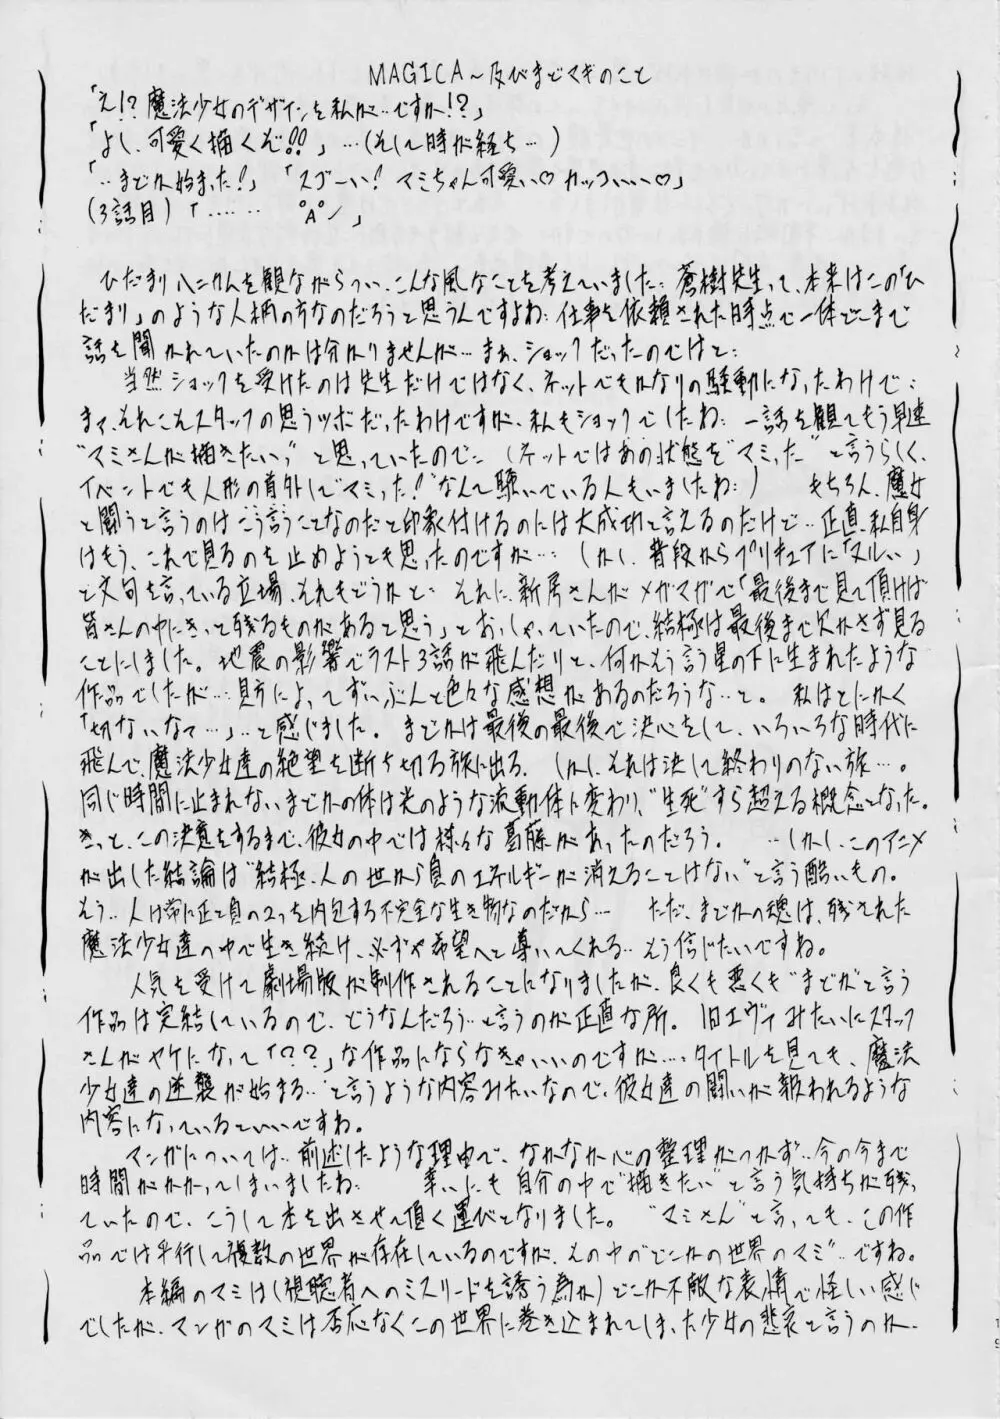 MAGICA～及びまどマギのこと
「え!?魔法少女のデザインを私が…ですか!?」
「よし、可愛く描くぞ!!」…(そして時が経ち…)
「…まどか始まった!」「スゴーい!マミちゃん可愛い♡カッコいいい♡」
(3話目)「……　°A°ノ」
ひだまりハニカムを観ながらつい、こんな風なことを考えていました… 蒼樹先生って、本来はこの「ひ
だまり」のような人柄の方なのだろうと思うんですよね… 仕事を依頼された時点で一体どこまで
話を聞かれていたのかは分かりませんが…まぁ、ショックだったのではと…
当然ショックを受けたのは先生だけではなく、ネットでもかなりの騒動になったわけで…
まァ、それこそスタッフの思うツボだったわけですが、私もショックでしたね… 一話を観てもう早速
"マミさんが描きたいっ"と思っていたので… (ネットではあの状態を"マミった"と言うらしく、
イベントでも人形の首外して"マミった!"なんて騒いでいる人もいましたね…) もちろん、魔女
と闘うと言うのはこう言うことなのだと印象付けるのには大成功と言えるのだけど…正直、私自身
はもう、これで見るのを止めようとも思ったのですが… しかし、普段からプリキュアに「ヌルい」
と文句を言っている立場、それもどうかと… それに、新房さんがメガマガで「最後まで見て頂けば
皆さんの中にきっと残るものがあると思う」とおっしゃっていたので、結極は最後まで欠かさず見る
ことにしました。地震の影響でラスト3話が飛んだりと、何かもう言う星の下に生まれたような
作品でしたが…見方によってずいぶんと色々な感想があるのだろうな…と。私はとにかく
「切ないなァ…」…と感じました。まどかは最後の最後で決心をして、いろいろな時代に
飛んで、魔法少女達の絶望を断ち切る旅に出る。しかし、それは決して終わりのない旅…。
同じ時間に止まれないまどかの体は光のような流動体に変わり、"生死"すら超える概念となった。
きっと、この決意をするまで、彼女の中では様々な葛藤があったのだろう。…しかし、このアニメ
が出した結論は"結極、人の世から負のエネルギーが消えることはない"と言う酷いもの。
もう…人は常に正と負の2つを内包する不完全な生き物なのだから… ただ、まどかの魂は、残された
魔法少女達の中で生き続け、必ずや希望へと導いてくれる…もう信じたいですね。
人気を受けて劇場版が制作されることになりましたが、良くも悪くも"まどか"と言う
作品は完結しているので、どうなんだろう…と言うのが正直な所。旧エヴァみたいにスタッフ
さんがヤケになって「??」な作品にならなきゃいいのですが…、タイトルを見ても、魔法
少女達の逆襲が始まる…と言うような内容みたいなので、彼女達の闘いが報われるような
内容になっているといいですね。
マンガについては…前述したような理由で、なかなか心の整理がつかず…今の今まで
時間がかかってしまいましたね… 幸いにも自分の中で"描きたい"と言う気持ちが残っ
ていたので、こうして本を出させて頂く運びとなりました。"マミさん"と言っても、この作
品では平行して複数の世界が存在しているのですが、その中の"どこかの世界のマミ"…ですね。
本編のマミは(視聴者へのミスリードを誘う為か)どこか不敵な表情で怪しい感じ
でしたが、マンガのマミは否応なくこの世界に巻き込まれてしまった少女の悲哀と言うのか、